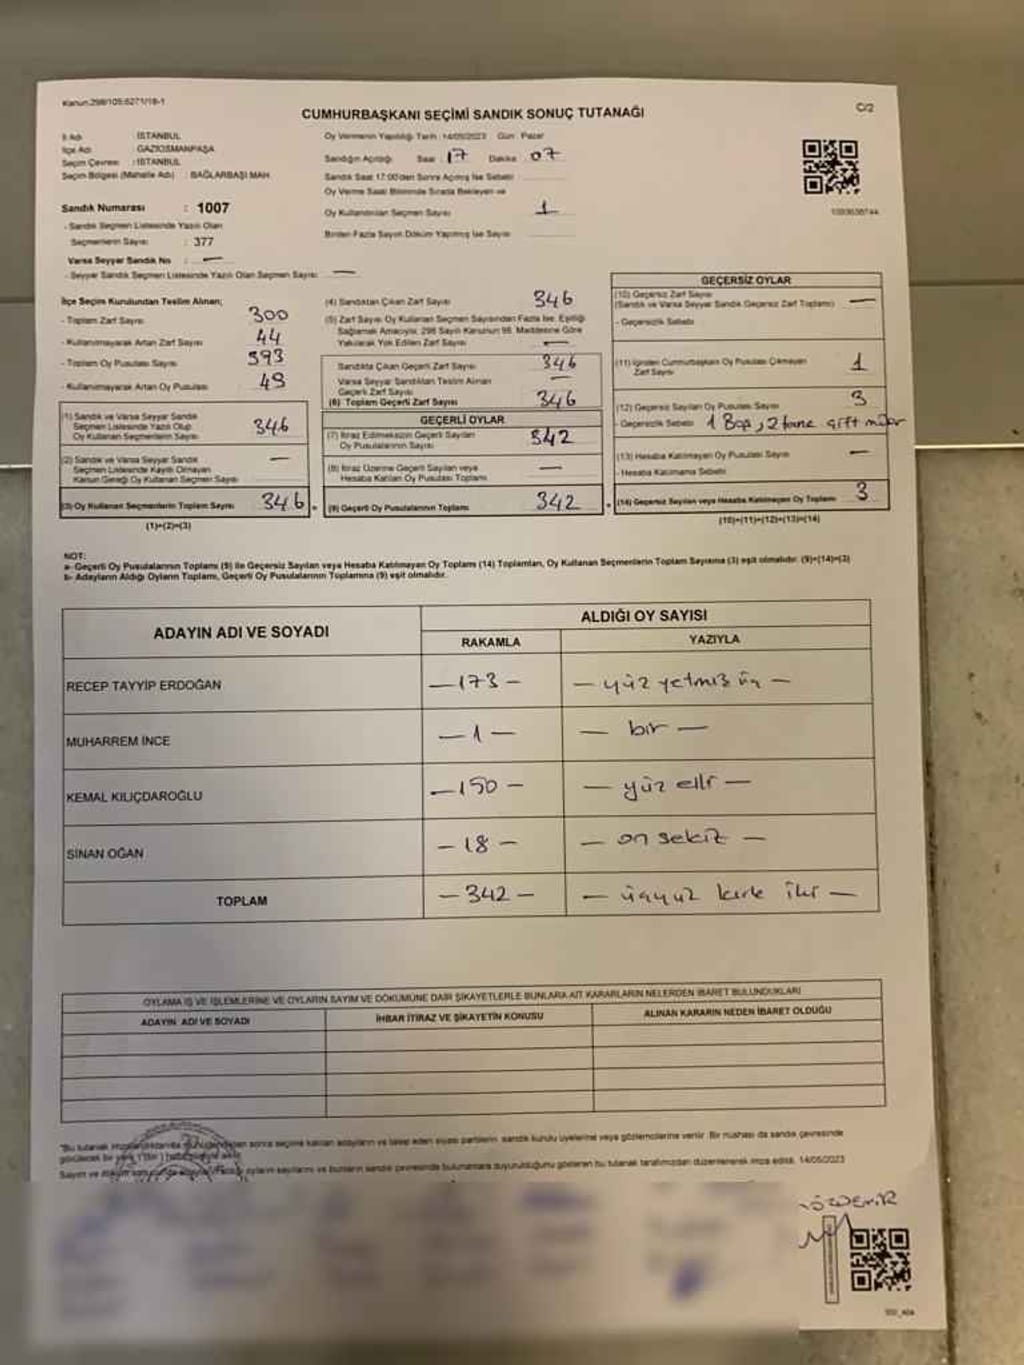 Kanun:298/105;6271/18-1
CUMHURBAŞKANI SEÇİMİ SANDIK SONUÇ TUTANAĞI
C/2
İl Adı : İSTANBUL
İlçe Adı : GAZİOSMANPAŞA
Seçim Çevresi : İSTANBUL
Seçim Bölgesi (Mahalle Adı) : BAĞLARBAŞI MAH.
Oy Vermenin Yapıldığı Tarih : 14/05/2023 Gün : Pazar
Sandığın Açıldığı Saat : 17 Dakika : 07
Sandık Saat 17:00'den Sonra Açılmış İse Sebebi :
Oy Verme Saati Bitiminde Sırada Bekleyen ve
Oy Kullandırılan Seçmen Sayısı : 1
Birden Fazla Sayım Döküm Yapılmış İse Sayısı :
Sandık Numarası : 1007
- Sandık Seçmen Listesinde Yazılı Olan
Seçmenlerin Sayısı : 377
Varsa Seyyar Sandık No : —
- Seyyar Sandık Seçmen Listesinde Yazılı Olan Seçmen Sayısı: —
İlçe Seçim Kurulundan Teslim Alınan;
- Toplam Zarf Sayısı : 300
- Kullanılmayarak Artan Zarf Sayısı : 44
- Toplam Oy Pusulası Sayısı : 393
- Kullanılmayarak Artan Oy Pusulası : 49
(1) Sandık ve Varsa Seyyar Sandık
Seçmen Listesinde Yazılı Olup
Oy Kullanan Seçmenlerin Sayısı : 346
(2) Sandık ve Varsa Seyyar Sandık
Seçmen Listesinde Kayıtlı Olmayan
Kanun Gereği Oy Kullanan Seçmen Sayısı : —
(3) Oy Kullanan Seçmenlerin Toplam Sayısı : 346
(1)+(2)=(3)
(4) Sandıktan Çıkan Zarf Sayısı : 346
(5) Zarf Sayısı Oy Kullanan Seçmen Sayısından Fazla İse, Eşitliği
Sağlamak Amacıyla; 298 Sayılı Kanunun 98. Maddesine Göre
Yakılarak Yok Edilen Zarf Sayısı : —
Sandıkta Çıkan Geçerli Zarf Sayısı : 346
Varsa Seyyar Sandıktan Teslim Alınan
Geçerli Zarf Sayısı : —
(6) Toplam Geçerli Zarf Sayısı : 346
GEÇERLİ OYLAR
(7) İtiraz Edilmeksizin Geçerli Sayılan
Oy Pusulasının Sayısı : 342
(8) İtiraz Üzerine Geçerli Sayılan veya
Hesaba Katılan Oy Pusulası Toplamı : —
(9) Geçerli Oy Pusulalarının Toplamı : 342
GEÇERSİZ OYLAR
(10) Geçersiz Zarf Sayısı
(Sandık ve Varsa Seyyar Sandık Geçersiz Zarf Toplamı) : —
- Geçersizlik Sebebi :
(11) İçinden Cumhurbaşkanı Oy Pusulası Çıkmayan
Zarf Sayısı : 1
(12) Geçersiz Sayılan Oy Pusulası Sayısı : 3
- Geçersizlik Sebebi : 1 Boş, 2 tane çift mühür
(13) Hesaba Katılmayan Oy Pusulası Sayısı : —
- Hesaba Katılmama Sebebi :
(14) Geçersiz Sayılan veya Hesaba Katılmayan Oy Toplamı : 3
(10)+(11)+(12)+(13)=(14)
NOT:
a- Geçerli Oy Pusulalarının Toplamı (9) ile Geçersiz Sayılan veya Hesaba Katılmayan Oy Toplamı (14) Toplamları, Oy Kullanan Seçmenlerin Toplam Sayısına (3) eşit olmalıdır. (9)+(14)=(3)
b- Adayların Aldığı Oyların Toplamı, Geçerli Oy Pusulalarının Toplamına (9) eşit olmalıdır.
ADAYIN ADI VE SOYADI
ALDIĞI OY SAYISI
RAKAMLA YAZIYLA
RECEP TAYYİP ERDOĞAN —173— — yüz yetmiş üç —
MUHARREM İNCE —1— — bir —
KEMAL KILIÇDAROĞLU —150— — yüz elli —
SİNAN OĞAN —18— — on sekiz —
TOPLAM —342— — üçyüz kırk iki —
OYLAMA İŞ VE İŞLEMLERİNE VE OYLARIN SAYIM VE DÖKÜMÜNE DAİR ŞİKAYETLERLE BUNLARA AİT KARARLARIN NELERDEN İBARET BULUNDUKLARI
ADAYIN ADI VE SOYADI İHBAR İTİRAZ VE ŞİKAYETİN KONUSU ALINAN KARARIN NEDEN İBARET OLDUĞU
sonra seçime katılan adayların ve talep eden siyasi partilerin, sandık kurulu üyelerine veya gözlemcilerine verilir. Bir nüshası da sandık çevresinde
oyların sayılarını ve bunların sandık çevresinde bulunanlara duyurulduğunu gösteren bu tutanak tarafımızdan düzenlenerek imza edildi. 14/05/2023
ÖZDEMİR